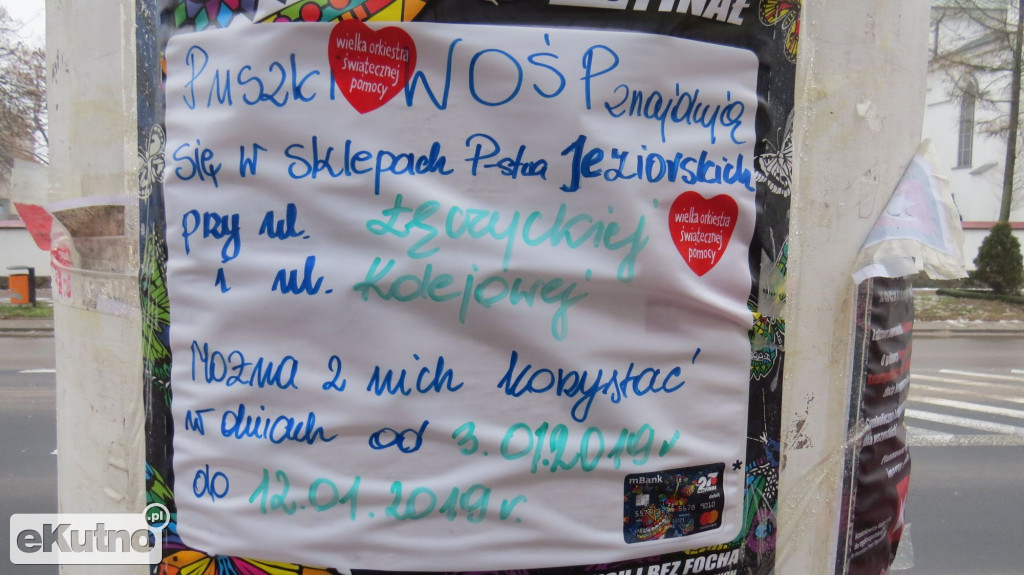 FINAŁ
Puszki WOŚP znajdują
się w sklepach P-stwa Jeziorskich
przy ul. Łęczyckiej
i ul. Kolejowej
Można z nich korzystać
w dniach od 3.01.2019 r
do 12.01.2019 r.
wielka orkiestra
świątecznej
pomocy
wielka orkiestra
świątecznej
pomocy
mBank
*
I BEZ FOCHA
eKutno.pl